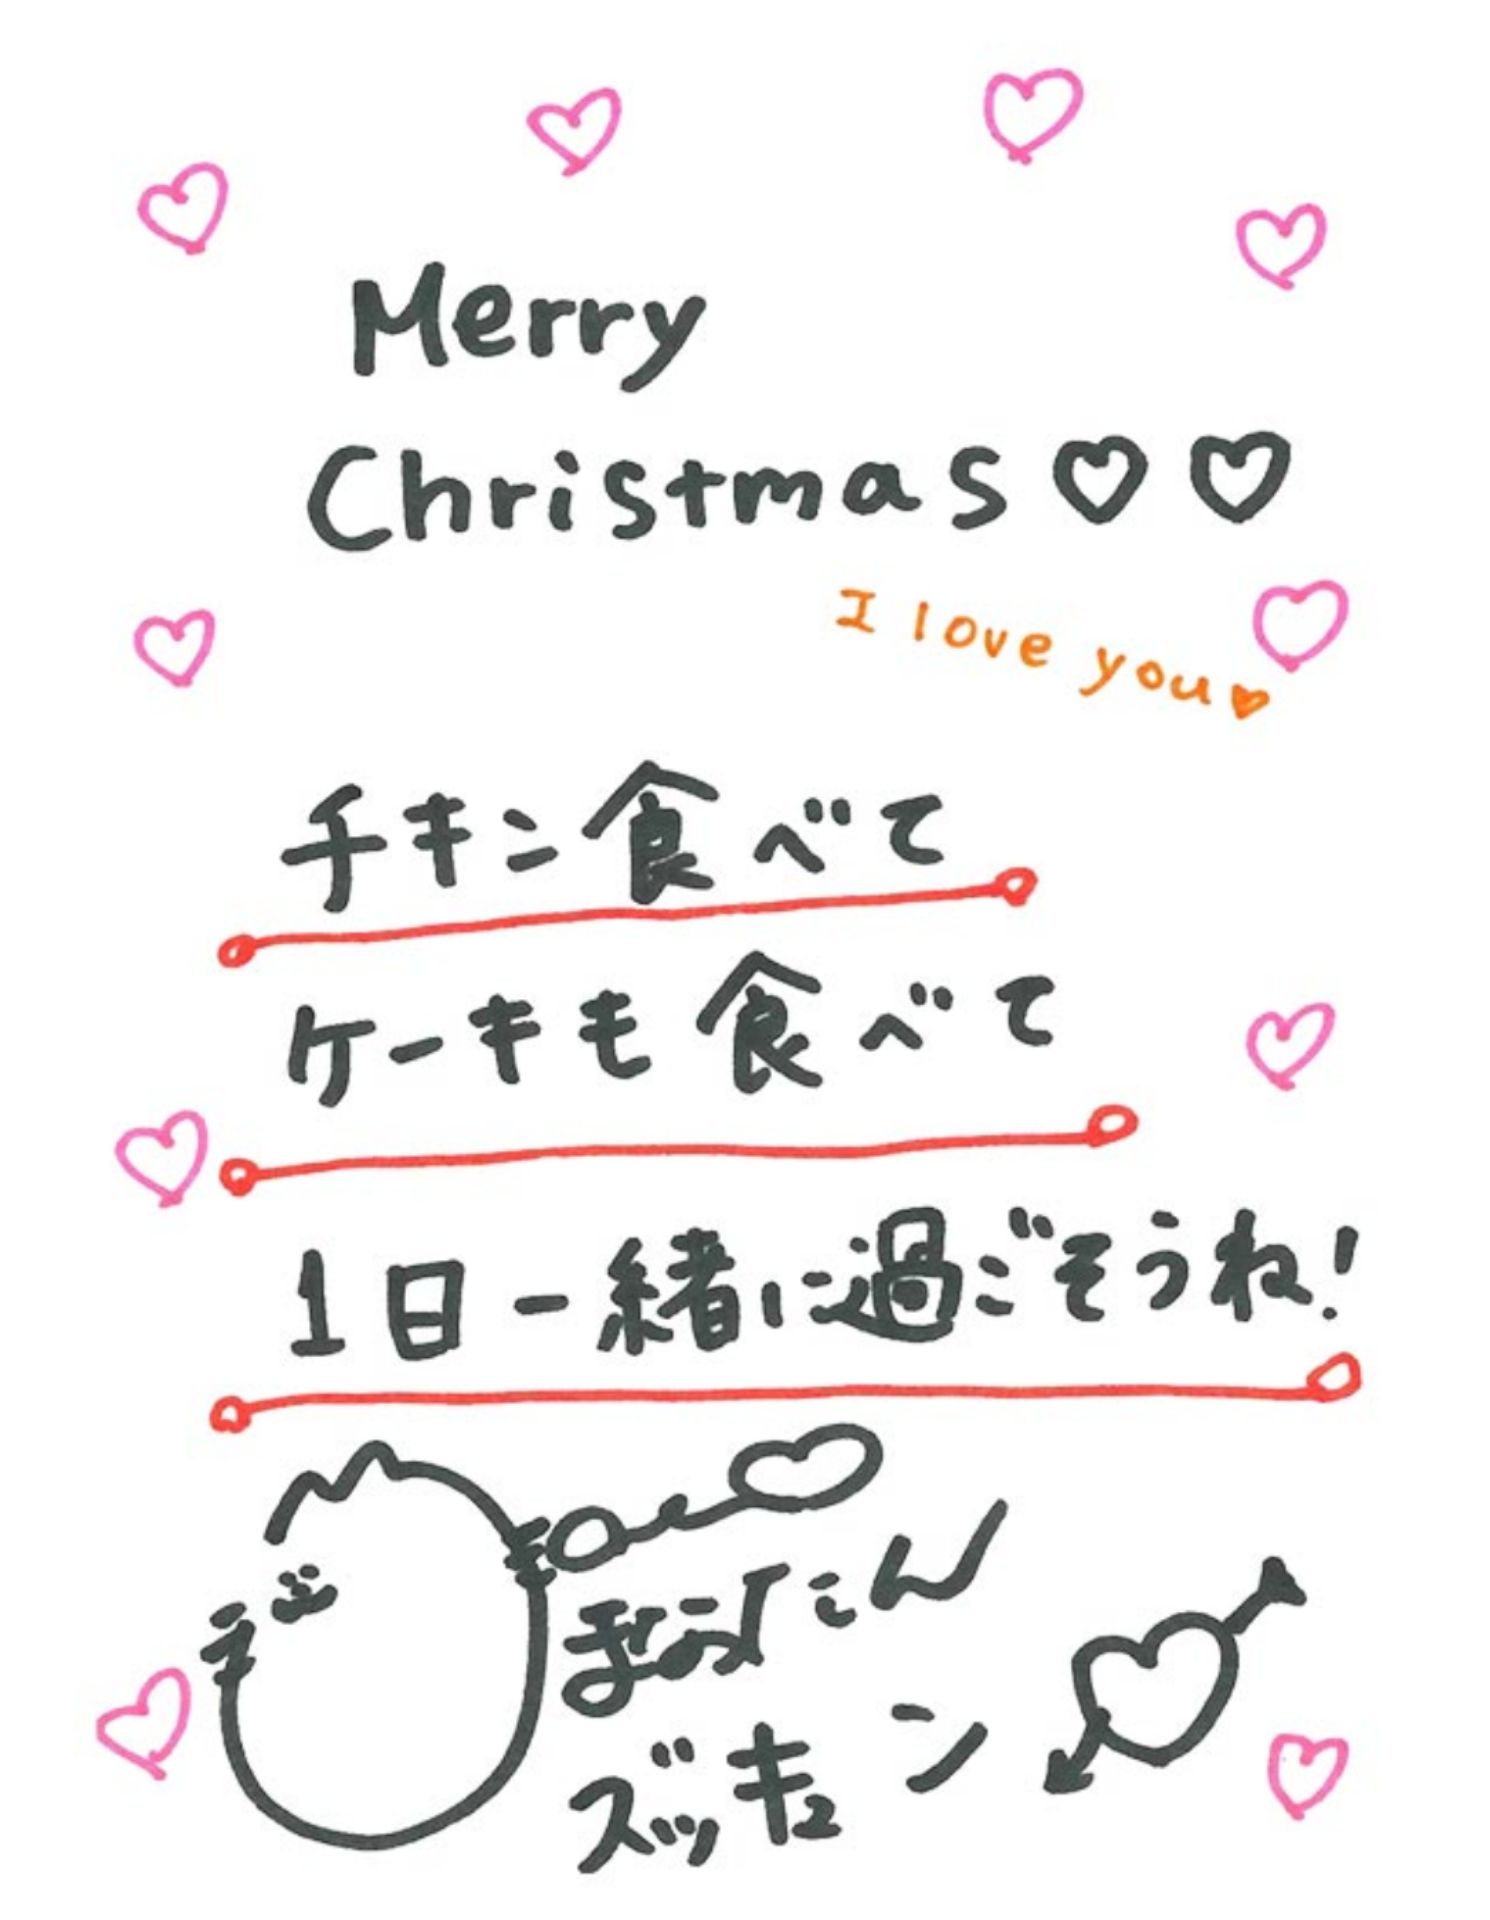 Merry
Christmas♡♡
I love you♥
チキン食べて
ケーキも食べて
1日一緒に過ごそうね!
ズッキュン